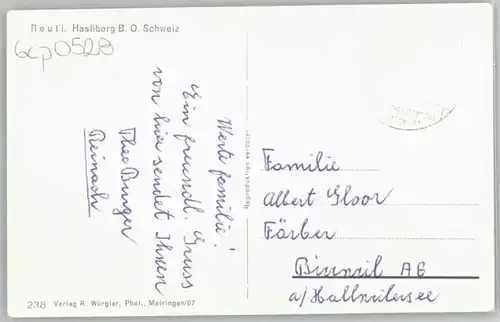 Reuti. Hasliberg B. O. Schweiz
6cp0528
Werte Familie!
Ein freundl. Gruss
von hier sendet Ihnen
Theo Burger
Reinach
Familie
Albert Gloor
Färber
Birrwil AG
a/Hallwilersee
238 Verlag R. Würgler, Phot., Meiringen/67